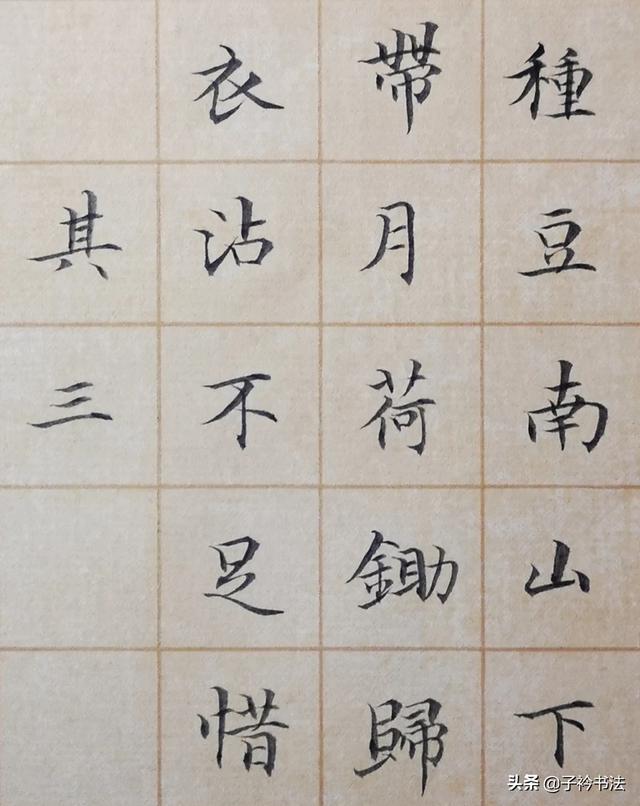 種豆南山下
帶月荷鋤歸
衣沾不足惜
其三
头条 @子衿书法